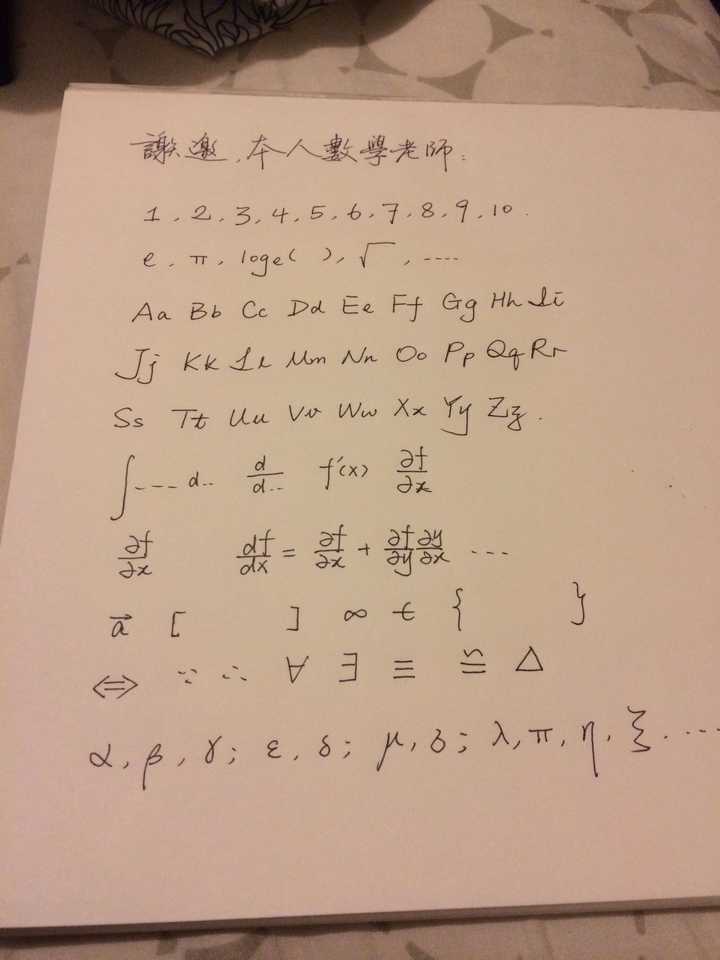 謝邀,本人數學老師:
1, 2, 3, 4, 5, 6, 7, 8, 9, 10.
e, π, loge( ), √ , ....
Aa Bb Cc Dd Ee Ff Gg Hh Ii
Jj Kk Ll Mm Nn Oo Pp Qq Rr
Ss Tt Uu Vv Ww Xx Yy Zz.
∫---- d.. d/d.. f'(x) ∂f/∂x
∂f/∂x df/dx = ∂f/∂x + ∂f/∂y ∂y/∂x ...
a⃗ [ ] ∞ { }
⇔ ∵ ∴ ∀ ∃ ≡ ≌ △
α, β, γ; ε, δ; μ, λ, π, η, ξ. ....